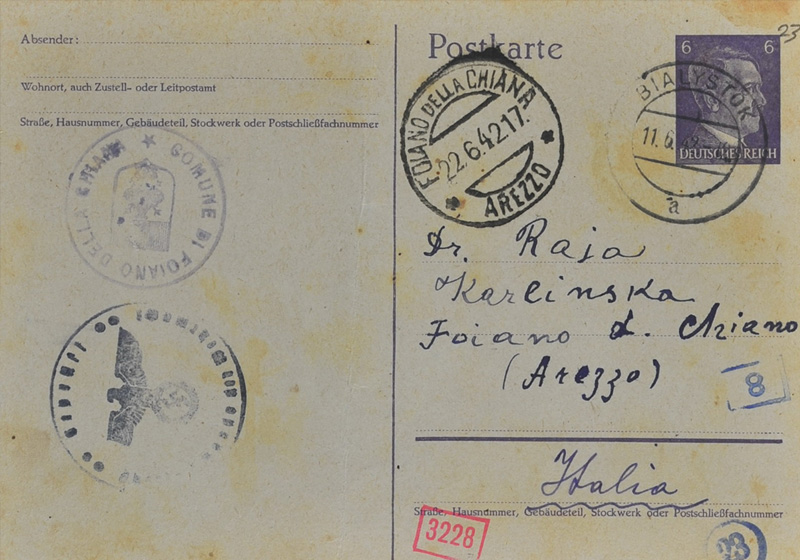 Absender:
Wohnort, auch Zustell- oder Leitpostamt
Straße, Hausnummer, Gebäudeteil, Stockwerk oder Postschließfachnummer
COMUNE DI FOIANO DELLA CHIANA
Postkarte
FOIANO DELLA CHIANA
22.6.42.17.
AREZZO
23
6 6
DEUTSCHES REICH
BIALYSTOK
11.6.
a
Dr. Raja
Karlinska
Foiano d. Chiano
(Arezzo)
8
Italia
Straße, Hausnummer, Gebäudeteil, Stockwerk oder Postschließfachnummer
3228